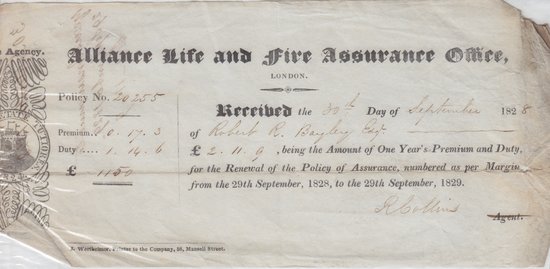 Agency.
Alliance Life and Fire Assurance Office,
LONDON.
Policy No. 20255
Received the 30th Day of September 1828
Premium 0. 17. 3
of Robert R. Bayley Esqr
Duty 1. 14. 6
£ 2. 11. 9, being the Amount of One Year's Premium and Duty,
£ 1150
for the Renewal of the Policy of Assurance, numbered as per Margin
from the 29th September, 1828, to the 29th September, 1829.
R Collins
Agent.
Wertheimer, Printer to the Company, Mansell Street.